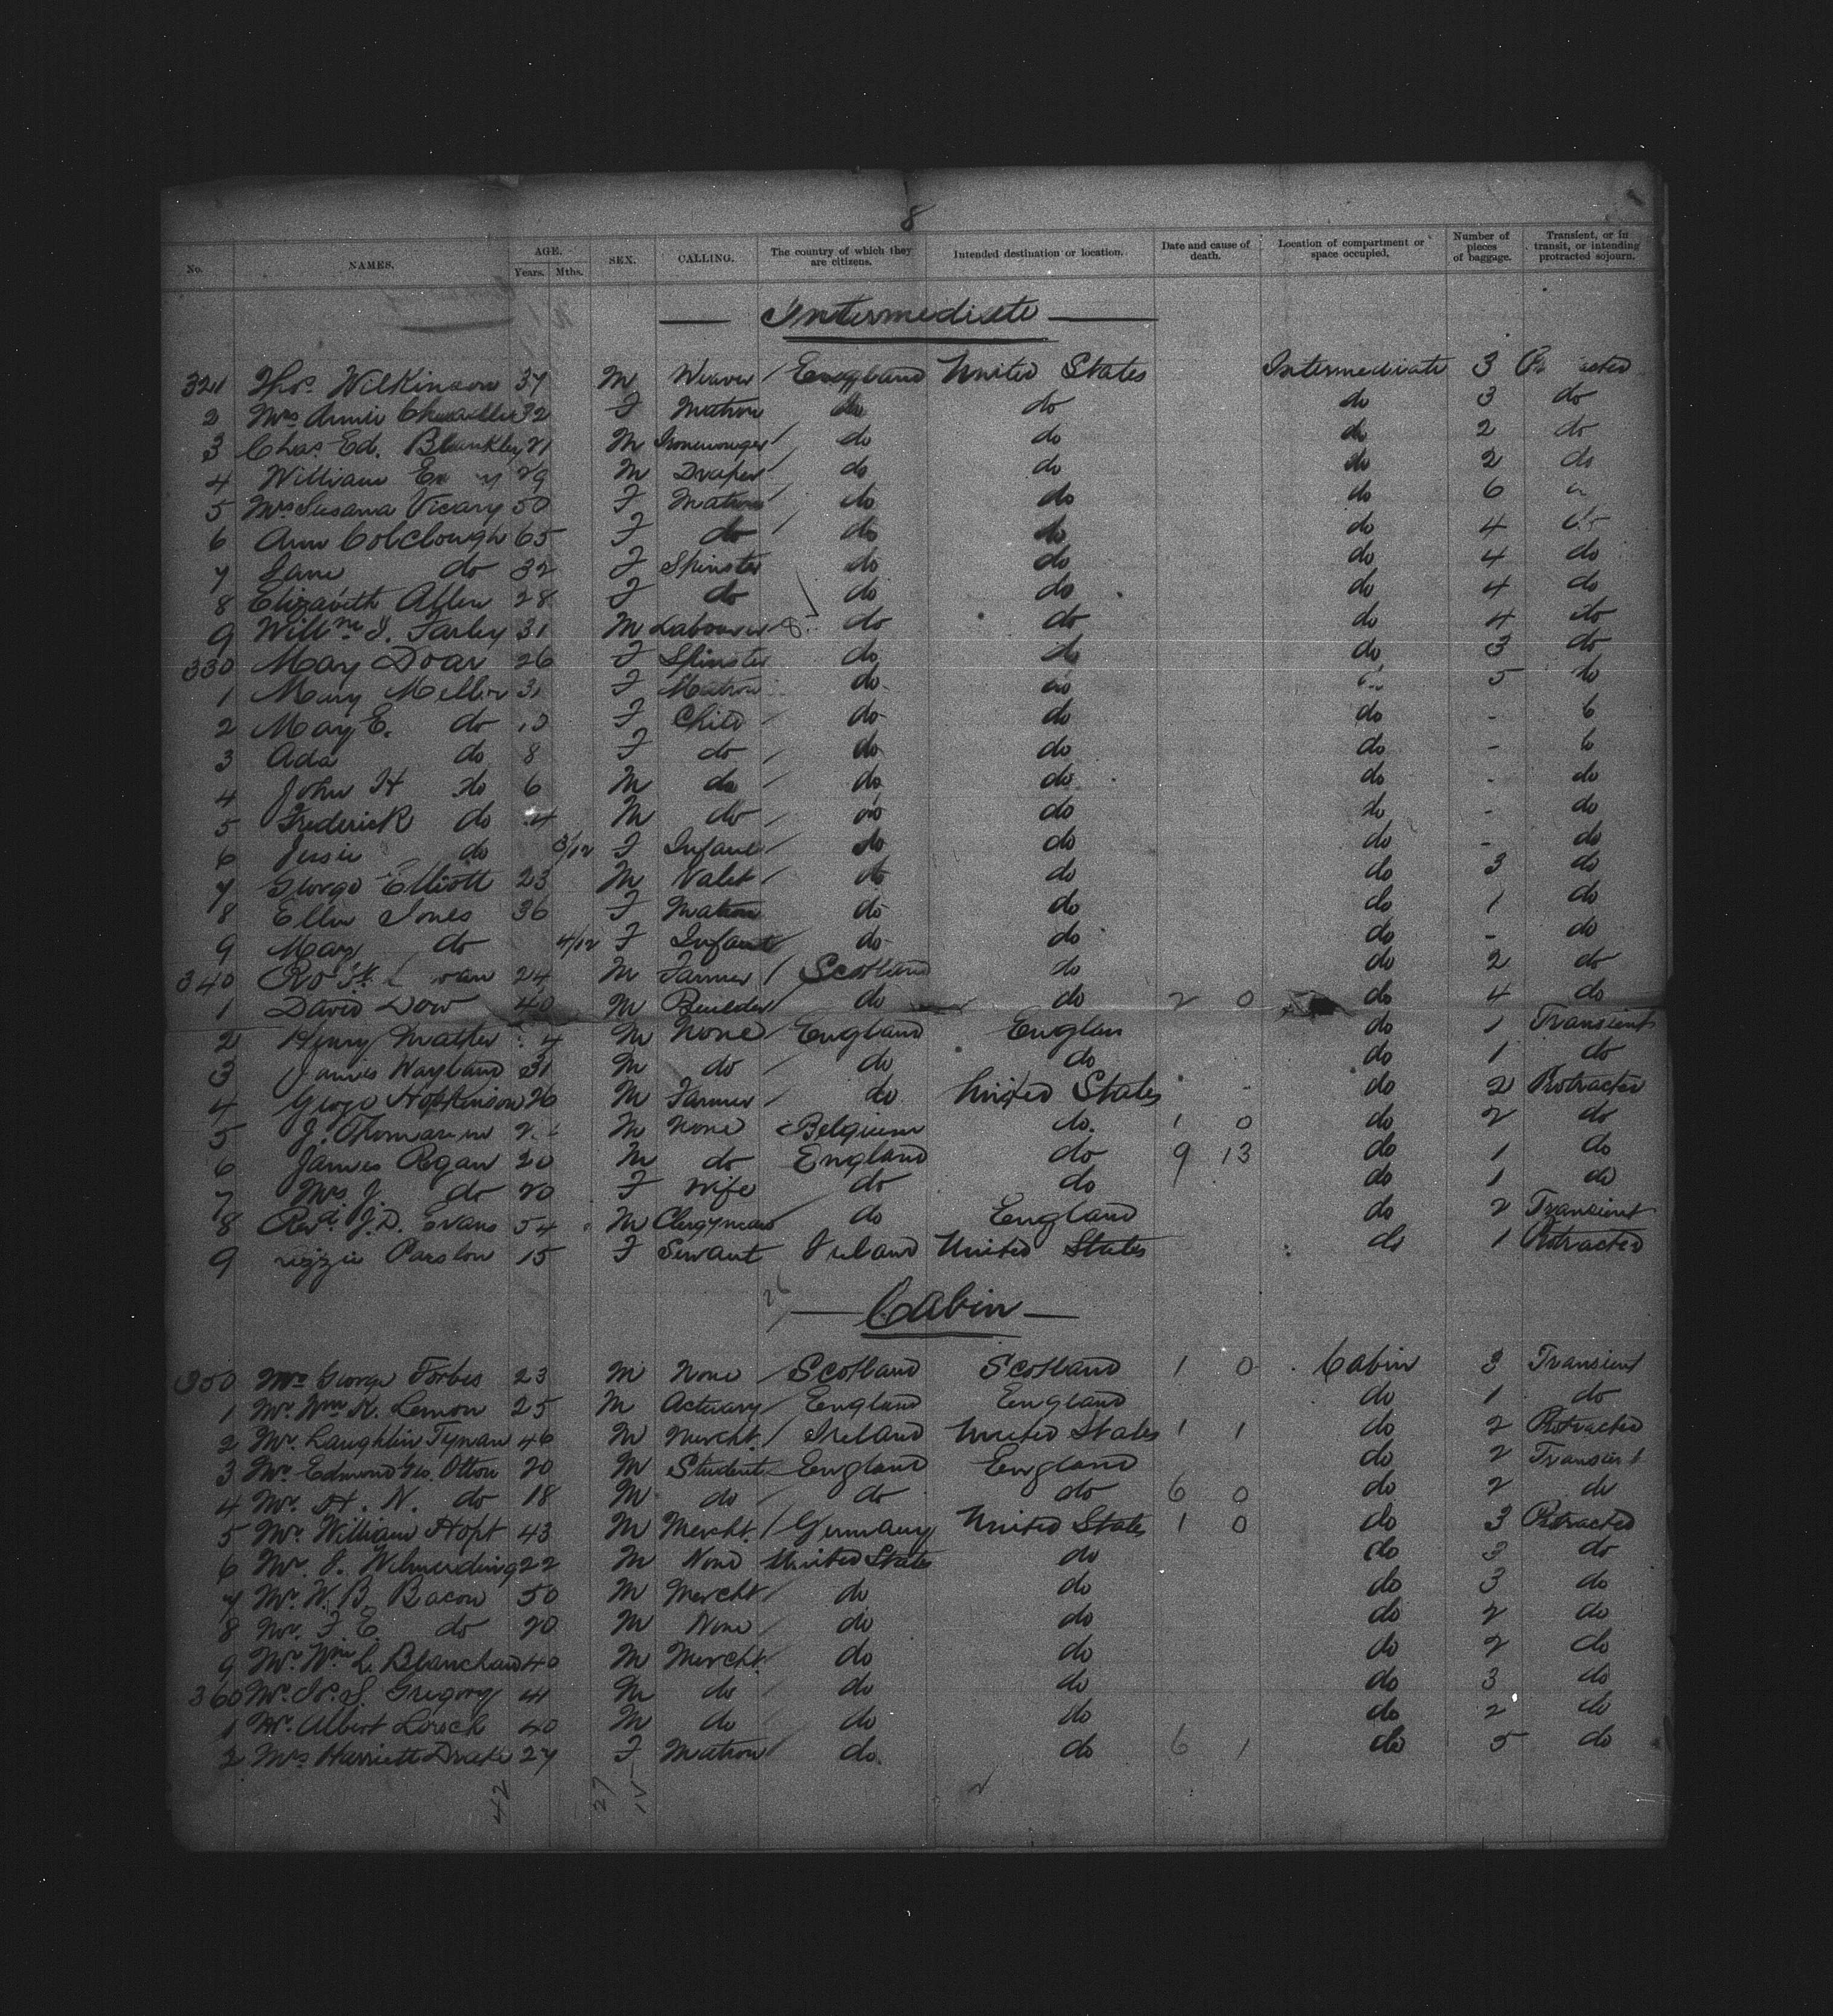 8
No. NAMES. AGE. Years. Mths. SEX. CALLING. The country of which they are citizens. Intended destination or location. Date and cause of death. Location of compartment or space occupied. Number of pieces of baggage. Transient, or in transit, or intending protracted sojourn.
Intermediate
321 Thos. Wilkinson 37 M Weaver England United States Intermediate 3
2 Mrs Annie 32 F Matron do do do 3 do
3 Chas. Ed. Blankley 21 M Ironmonger do do do 2 do
4 William 29 M Draper do do do 2 do
5 Mrs Susana Vicary 50 F Matron do do do 6
6 Ann Colclough 65 F do do do do 4 do
7 Jane do 32 F Spinster do do do 4 do
8 Elizabeth Allen 28 F do do do do 4 do
9 Willm J. Farley 31 M Labourer do do do 4 do
330 May Doar 26 F Spinster do do do 3 do
1 Mary Mellor 31 F Matron do do do 5 do
2 Mary E. do 10 F Child do do do -
3 Ada do 8 F do do do do -
4 John H do 6 M do do do do - do
5 Frederick do 4 M do do do do - do
6 Jessie do 3/12 F Infant do do do - do
7 George Elliott 23 M Valet do do do 3 do
8 Ellen Jones 36 F Matron do do do 1 do
9 Mary do 4/12 F Infant do do do - do
340 Robt. 24 M Farmer Scotland do do 2 do
1 David Dow 40 M Builder do do 2 0 do 4 do
2 Henry Mather M None England Englan do 1 Transient
3 James Wayland 31 M do do do do 1 do
4 George Hopkinson 26 M Farmer do United States do 2 Protracted
5 J. M None Belgium do. 1 0 do 2 do
6 James Regan 20 M do England do 9 13 do 1 do
7 Mrs J. do 20 F Wife do do do 1 do
8 Revd. J.D. Evans 54 M Clergyman do England do 2 Transient
9 Lizzie Parslow 15 F Servant Ireland United States do 1 Protracted
26
Cabin
350 Mr George Forbes 23 M None Scotland Scotland 1 0 Cabin 3 Transient
1 Mr. Wm K. Lemon 25 M Actuary England England do 1 do
2 Mr. Laughlin Tynan 46 M Mercht. Ireland United States 1 1 do 2 Protracted
3 Mr Edmond Geo. Otton 20 M Student England England do 2 Transient
4 Mr. H. N. do 18 M do do do 6 0 do 2 do
5 Mr. William Hopt 43 M Mercht. Germany United States 1 0 do 3 Protracted
6 Mr. J. Wilmerding 22 M None United States do do 3 do
7 Mr. W. B. Bacon 50 M Mercht. do do do 3 do
8 Mr. F. E. do 20 M None do do do 2 do
9 Mr. Wm L. Blanchard 40 M Mercht. do do do 2 do
360 Mr. Jos. S. Gregory 41 M do do do do 3 do
1 Mr. Albert Lorsch 40 M do do do do 2 do
2 Mrs Harriett Drake 27 F Matron do. do 6 1 do 5 do
42 27 15